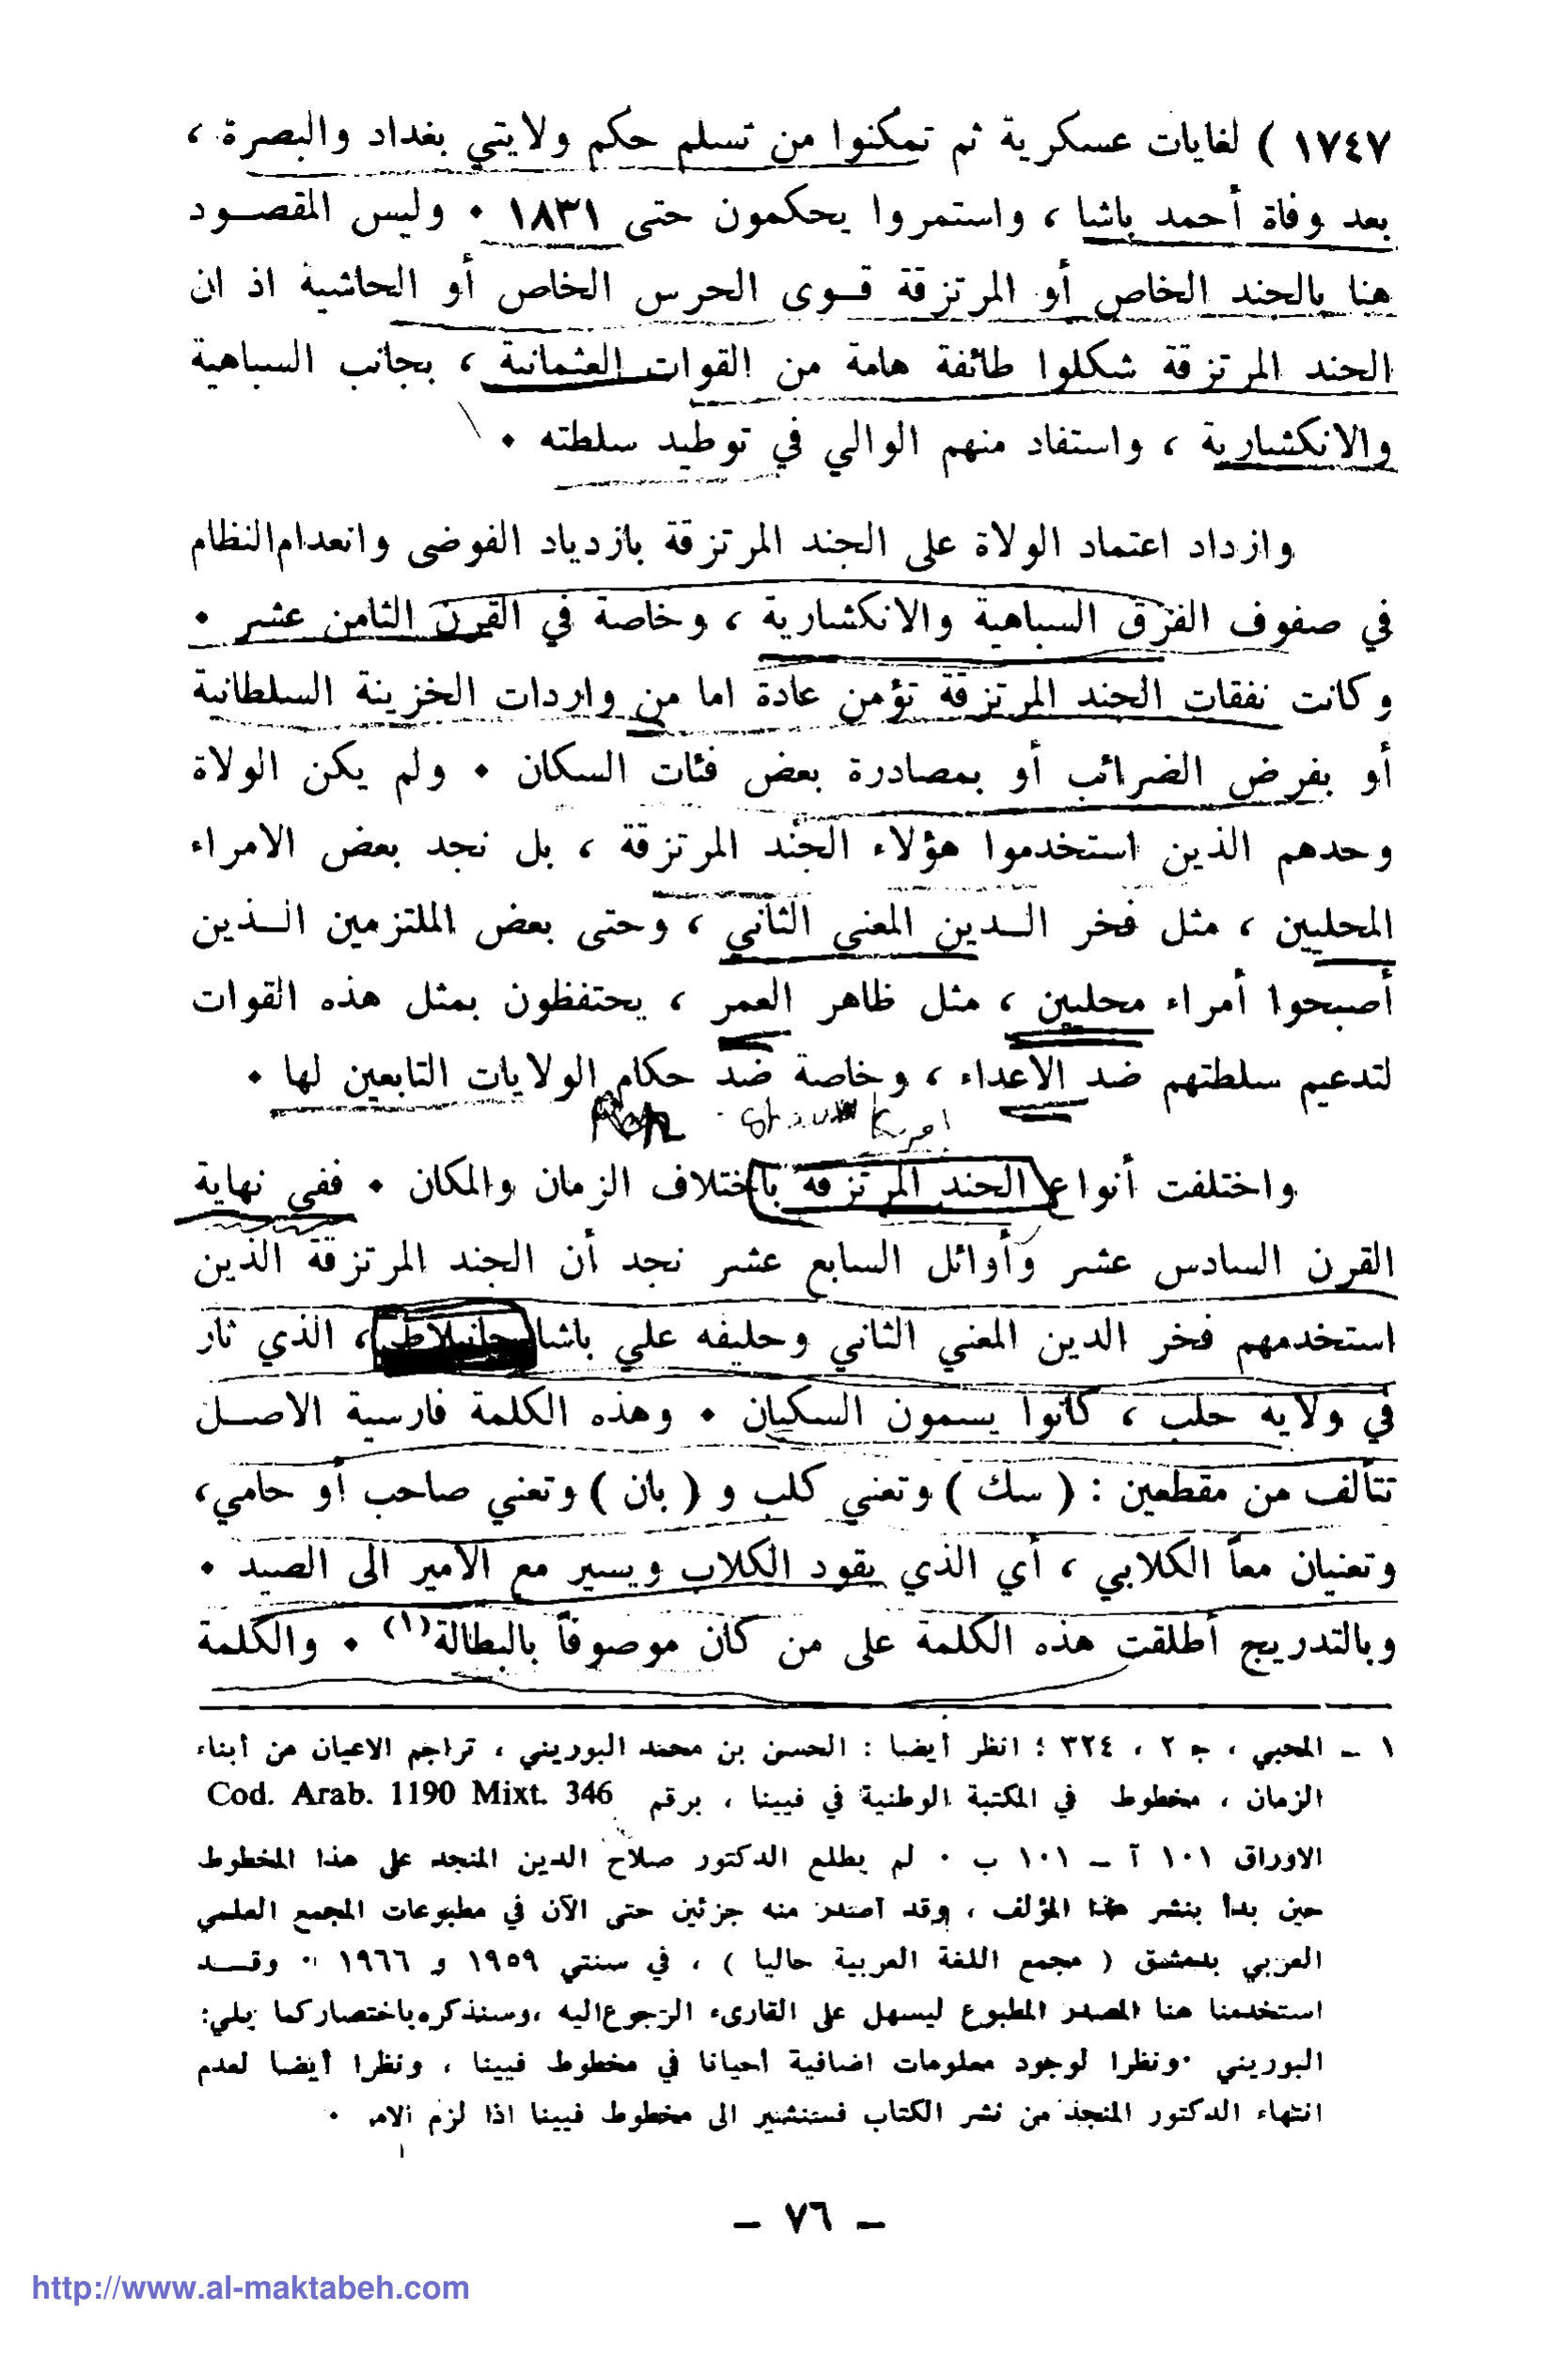 ١٧٤٧ ) لغايات عسكرية ثم تمكنوا من تسلم حكم ولايتي بغداد والبصرة ،
بعد وفاة أحمد باشا ، واستمروا يحكمون حتى ١٨٣١ ٠ وليس المقصود
هنا بالجند الخاص أو المرتزقة قوى الحرس الخاص أو الحاشية اذ ان
الجند المرتزقة شكلوا طائفة هامة من القوات العثمانية ، بجانب السباهية
والانكشارية ، واستفاد منهم الوالي في توطيد سلطته ٠
وازداد اعتماد الولاة على الجند المرتزقة بازدياد الفوضى وانعدام النظام
في صفوف الفرق السباهية والانكشارية ، وخاصة في القرن الثامن عشر ٠
وكانت نفقات الجند المرتزقة تؤمن عادة اما من واردات الخزينة السلطانية
أو بفرض الضرائب أو بمصادرة بعض فئات السكان ٠ ولم يكن الولاة
وحدهم الذين استخدموا هؤلاء الجند المرتزقة ، بل نجد بعض الامراء
المحليين ، مثل فخر الدين المعني الثاني ، وحتى بعض الملتزمين الذين
أصبحوا أمراء محليين ، مثل ظاهر العمر ، يحتفظون بمثل هذه القوات
لتدعيم سلطتهم ضد الاعداء ، وخاصة ضد حكام الولايات التابعين لها ٠
واختلفت أنواع الجند المرتزقة باختلاف الزمان والمكان ٠ ففي نهاية
القرن السادس عشر وأوائل السابع عشر نجد أن الجند المرتزقة الذين
استخدمهم فخر الدين المعني الثاني وحليفه علي باشا جانبلاط ، الذي ثار
في ولاية حلب ، كانوا يسمون السكبان ٠ وهذه الكلمة فارسية الاصل
تتألف من مقطعين : ( سك ) وتعني كلب و ( بان ) وتعني صاحب أو حامي،
وتعنيان معاً الكلابي ، أي الذي يقود الكلاب ويسير مع الامير الى الصيد ٠
وبالتدريج أطلقت هذه الكلمة على من كان موصوفاً بالبطالة(١) ٠ والكلمة
١ ــ المحبي ، ج ٢ ، ٣٢٤ ؛ انظر أيضا : الحسن بن محمد البوريني ، تراجم الاعيان من أبناء
الزمان ، مخطوط في المكتبة الوطنية في فيينا ، برقم Cod. Arab. 1190 Mixt. 346
الاوراق ١٠١ آ ــ ١٠١ ب ٠ لم يطلع الدكتور صلاح الدين المنجد على هذا المخطوط
حين بدأ بنشر هذا المؤلف ، وقد أصدر منه جزئين حتى الآن في مطبوعات المجمع العلمي
العربي بدمشق ( مجمع اللغة العربية حاليا ) ، في سنتي ١٩٥٩ و ١٩٦٦ ٠ وقد
استخدمنا هنا المصدر المطبوع ليسهل على القارىء الرجوع اليه ،وسنذكره باختصار كما يلي:
البوريني ٠ونظرا لوجود معلومات اضافية أحيانا في مخطوط فيينا ، ونظرا أيضا لعدم
انتهاء الدكتور المنجد من نشر الكتاب فسنشير الى مخطوط فيينا اذا لزم الامر ٠
ــ ٧٦ ــ
http://www.al-maktabeh.com